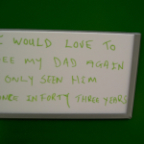 I WOULD LOVE TO
SEE MY DAD AGAIN
ONLY SEEN HIM
ONCE IN FORTY THREE YEARS